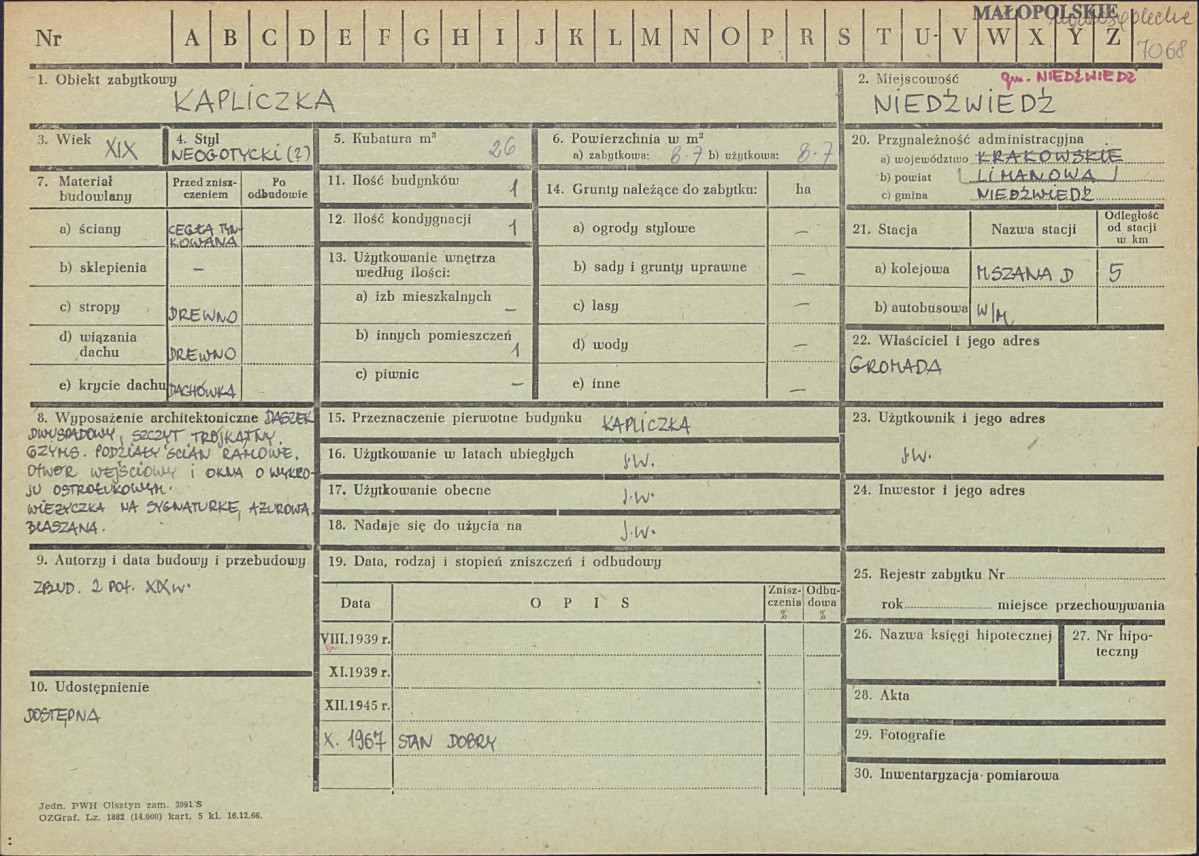 MAŁOPOLSKIE
7068
Nr A B C D E F G H I J K L M N O P R S T U V W X Y Z
1. Obiekt zabytkowy
KAPLICZKA
2. Miejscowość gm. NIEDŹWIEDŹ
NIEDŹWIEDŹ
3. Wiek XIX
4. Styl
NEOGOTYCKI (?)
5. Kubatura m³ 26
6. Powierzchnia w m²
a) zabytkowa: 8.7 b) użytkowa: 8.7
7. Materiał budowlany
Przed zniszczeniem
Po odbudowie
a) ściany CEGŁA TYN-
KOWANA
b) sklepienia –
c) stropy DREWNO
d) wiązania
dachu DREWNO
e) krycie dachu DACHÓWKA
8. Wyposażenie architektoniczne DASZEK
DWUSPADOWY, SZCZYT TRÓJKĄTNY.
GZYMS. PODZIAŁY ŚCIAN RAMOWE.
OTWÓR WEJŚCIOWY I OKNA O WYKRO-
JU OSTROŁUKOWYM.
WIEŻYCZKA NA SYGNATURKĘ, AŻUROWA.
BLASZANA.
9. Autorzy i data budowy i przebudowy
ZBUD. 2 POŁ. XIX w.
10. Udostępnienie
DOSTĘPNA
11. Ilość budynków 1
12. Ilość kondygnacji 1
13. Użytkowanie wnętrza
według ilości:
a) izb mieszkalnych –
b) innych pomieszczeń 1
c) piwnic –
14. Grunty należące do zabytku: ha
a) ogrody stylowe –
b) sady i grunty uprawne –
c) lasy –
d) wody –
e) inne –
15. Przeznaczenie pierwotne budynku KAPLICZKA
16. Użytkowanie w latach ubiegłych j.w.
17. Użytkowanie obecne j.w.
18. Nadaje się do użycia na j.w.
19. Data, rodzaj i stopień zniszczeń i odbudowy
Data OPIS Zniszczenia % Odbudowa %
VIII.1939 r.
XI.1939 r.
XII.1945 r.
X. 1967 STAN DOBRY
20. Przynależność administracyjna
a) województwo KRAKOWSKIE
b) powiat LIMANOWA
c) gmina NIEDŹWIEDŹ
21. Stacja Nazwa stacji Odległość od stacji w km
a) kolejowa MSZANA D 5
b) autobusowa W/M
22. Właściciel i jego adres
GROMADA
23. Użytkownik i jego adres
j.w.
24. Inwestor i jego adres
25. Rejestr zabytku Nr
rok miejsce przechowywania
26. Nazwa księgi hipotecznej
27. Nr hipo-
teczny
28. Akta
29. Fotografie
30. Inwentaryzacja pomiarowa
Jedn. PWH Olsztyn zam. 3991 S
OZGraf. Lz. 1882 (14.000) kart. 5 kl. 16.12.66.